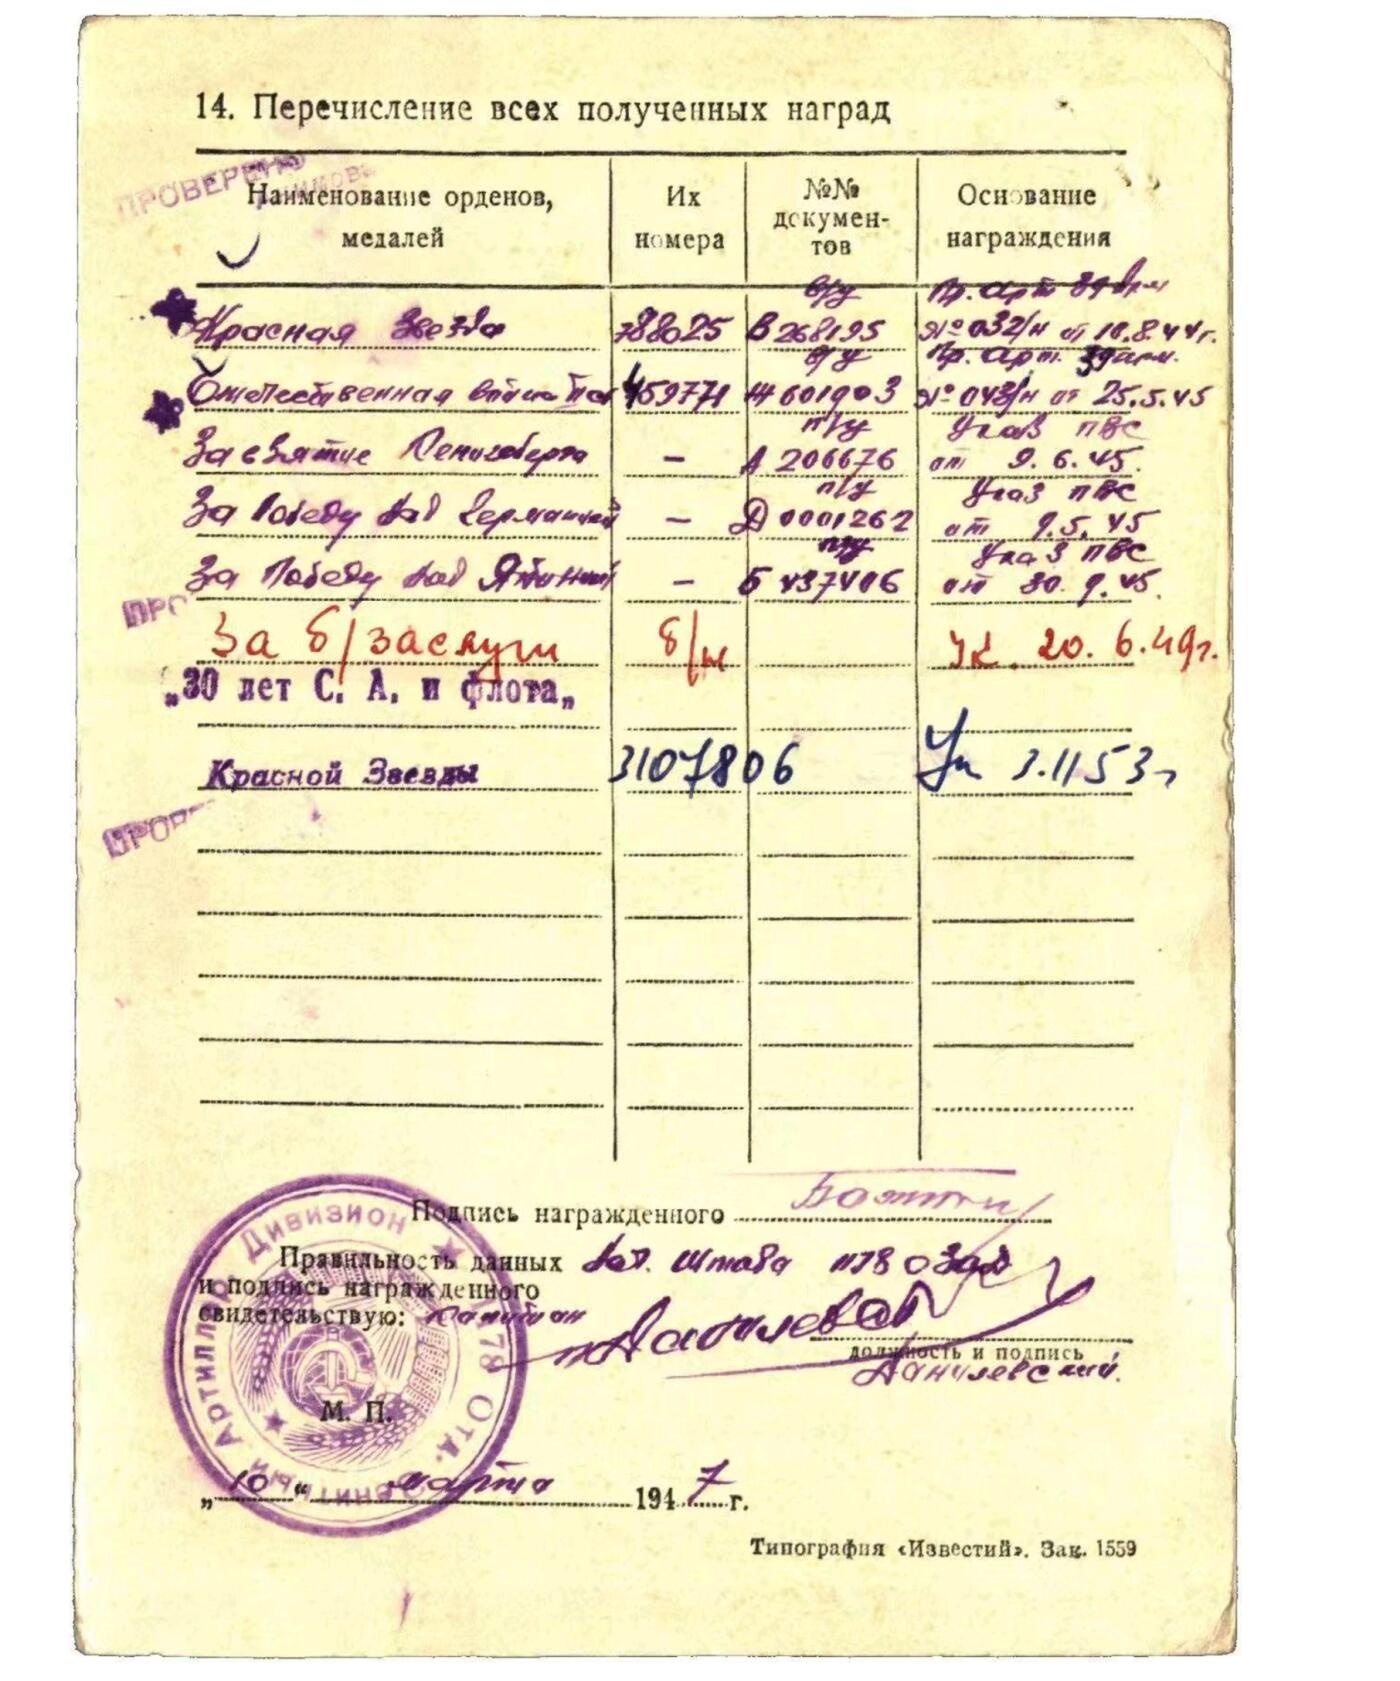 14. Перечисление всех полученных наград
ПРОВЕРЕНО
Наименование орденов, медалей
Их номера
№№ документов
Основание награждения
в/у Пр. Арт 39 Арм
Красная Звезда 788025 В 268195 № 032/н от 10.8.44г.
в/у Пр. Арт. 39 арм.
Отечественная война 459771 Ж 601903 № 043/н от 25.5.45
п/у Указ ПВС
За взятие Кенигсберга — А 206676 от 9.6.45.
п/у Указ ПВС
За Победу над Германией — Д 0001262 от 9.5.45
п/у Указ ПВС
За Победу над Японией — Б 437406 от 30.9.45.
ПРО
За б/заслуги б/н Ук. 20.6.49г.
„30 лет С. А. и флота„
Красной Звезды 3107806 Ук 3.11 53г
ПРОВ
Подпись награжденного
Правильность данных Нач. Штаба 1178 ОЗАД
и подпись награжденного
свидетельствую: Капитан
должность и подпись
Данилевский.
М. П.
Дивизион ★ 1178 Отд. Зенитный Артиллер
„10“ марта 1947 г.
Типография «Известий». Зак. 1559